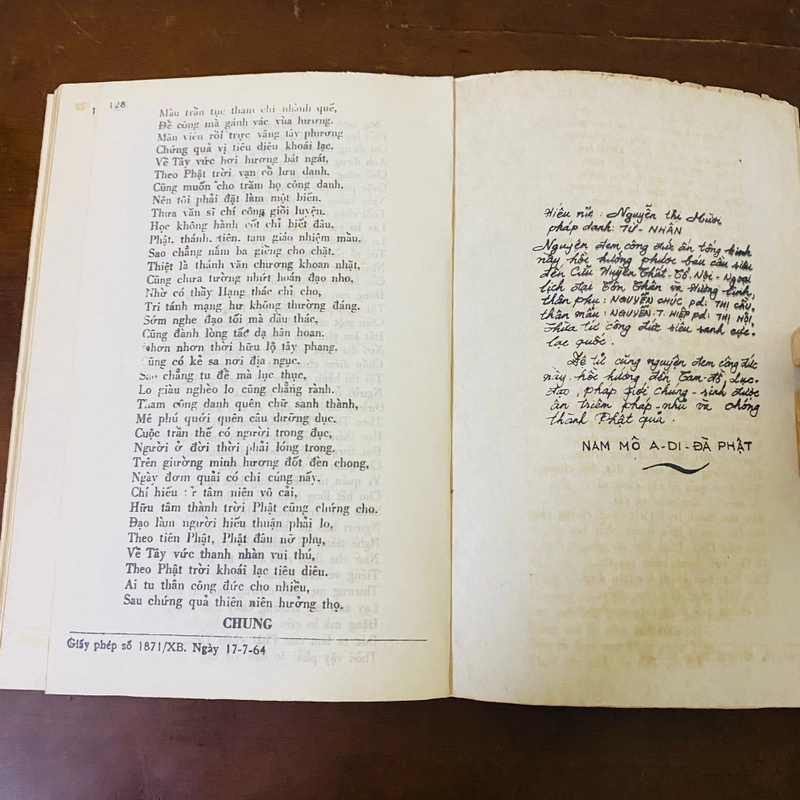 128
Màu trần tục tham chi nhành quế,
Để công mà gánh vác vùa hương.
Mãn viên rồi trực vãng tây phương
Chứng quả vị tiêu diêu khoái lạc.
Về Tây vức hơi hương bát ngát,
Theo Phật trời vạn cổ lưu danh.
Cũng muốn cho trăm họ công danh.
Nên tôi phải đặt làm một biến.
Thưa văn sĩ chí công giồi luyện,
Học không hành cốt chỉ biết đâu.
Phật, thánh, tiên, tam giáo nhiệm mầu.
Sao chẳng nắm ba giềng cho chặt.
Thiệt là thánh văn chương khoan nhặt,
Cũng chưa tường nhứt hoán đạo nho,
Nhờ có thầy Hạng thác chỉ cho,
Tri tánh mạng hư không thường đáng.
Sớm nghe đạo tối mà dầu thác,
Cũng đành lòng tấc dạ hân hoan.
nhơn nhơn thời hữu lộ tây phang.
Cũng có kẻ sa nơi địa ngục.
Sao chẳng tu để mà lục thục,
Lo giàu nghèo lo cũng chẳng rành.
Tham công danh quên chữ sanh thành,
Mê phú quới quên câu dưỡng dục.
Cuộc trần thế có người trong đục,
Người ở đời thời phải lóng trong.
Trên giường minh hương đốt đèn chong,
Ngày đơm quải có chi cúng nấy.
Chí hiếu từ tâm niên vô cải,
Hữu tâm thành trời Phật cũng chứng cho.
Đạo làm người hiếu thuận phải lo,
Theo tiên Phật, Phật đâu nở phụ,
Về Tây vức thanh nhàn vui thú,
Theo Phật trời khoái lạc tiêu diêu.
Ai tu thân công đức cho nhiều,
Sau chứng quả thiên niên hưởng thọ.
CHUNG
Giấy phép số 1871/XB. Ngày 17-7-64
Hiếu nữ: Nguyễn thi Mười
pháp danh: TỪ - NHÂN
Nguyện đem công đức ấn tống kinh
này hồi hướng phước báu cầu siêu
đến Cửu Huyền Thất-Tổ, Nội-Ngoại
lịch đại Tôn Thân và Hương linh,
thân phụ: NGUYỄN CHỨC pd: THỊ CẦU,
thân mẫu: NGUYỄN.T.HIỆP pd: THỊ HỘI,
thừa tư công đức siêu sanh cực-
lạc quốc.
Đệ tử cũng nguyện đem công đức
này, hồi hướng đến Tam-đồ, Lục-
đạo, pháp giới chúng-sinh được
ân triêm pháp-nhũ và chóng
thành Phật quả.
NAM MÔ A-DI-ĐÀ PHẬT